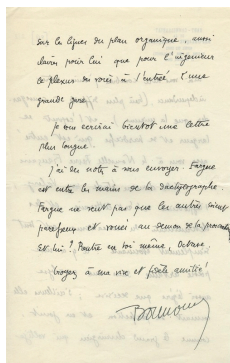 sur la ligne du plan organique, aussi
claire pour lui que pour l'ingénieur
le plexus des voies à l'entrée d'une
grande gare.
Je vous écrirai bientôt une lettre
plus longue.
J'ai des notes à vous envoyer. Fargue
est entre les mains de la dactylographe.
Fargue ne veut pas que les autres soient
et voués au démon de la
Est lui? Rentre en toi même, Octave.
Croyez à ma vive et fidèle amitié!